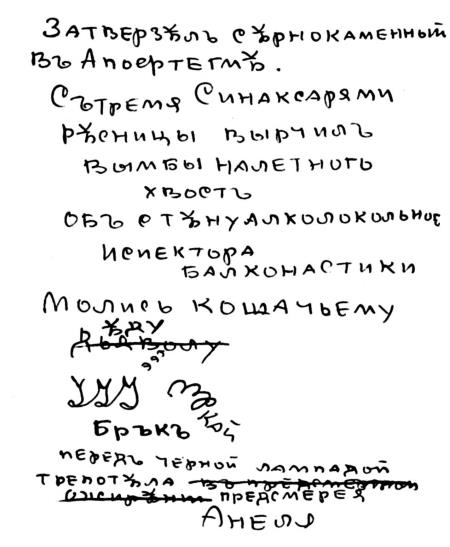 Затверзѣлъ сѣрнокаменный
Въ Апоертегмѣ.
Сътремя Синаксарями
рѣсницы вырчилъ
вымбы налетного
хвостъ
объ стѣнуалхолокольное
испектора
балхонастики
Молись кошачьему
ѣду
Дьяволу
УУУ
Бръкъ
передъ черной лампадой
трепотѣла въ предсмертном
ожирѣнии предсмерея
Анеля